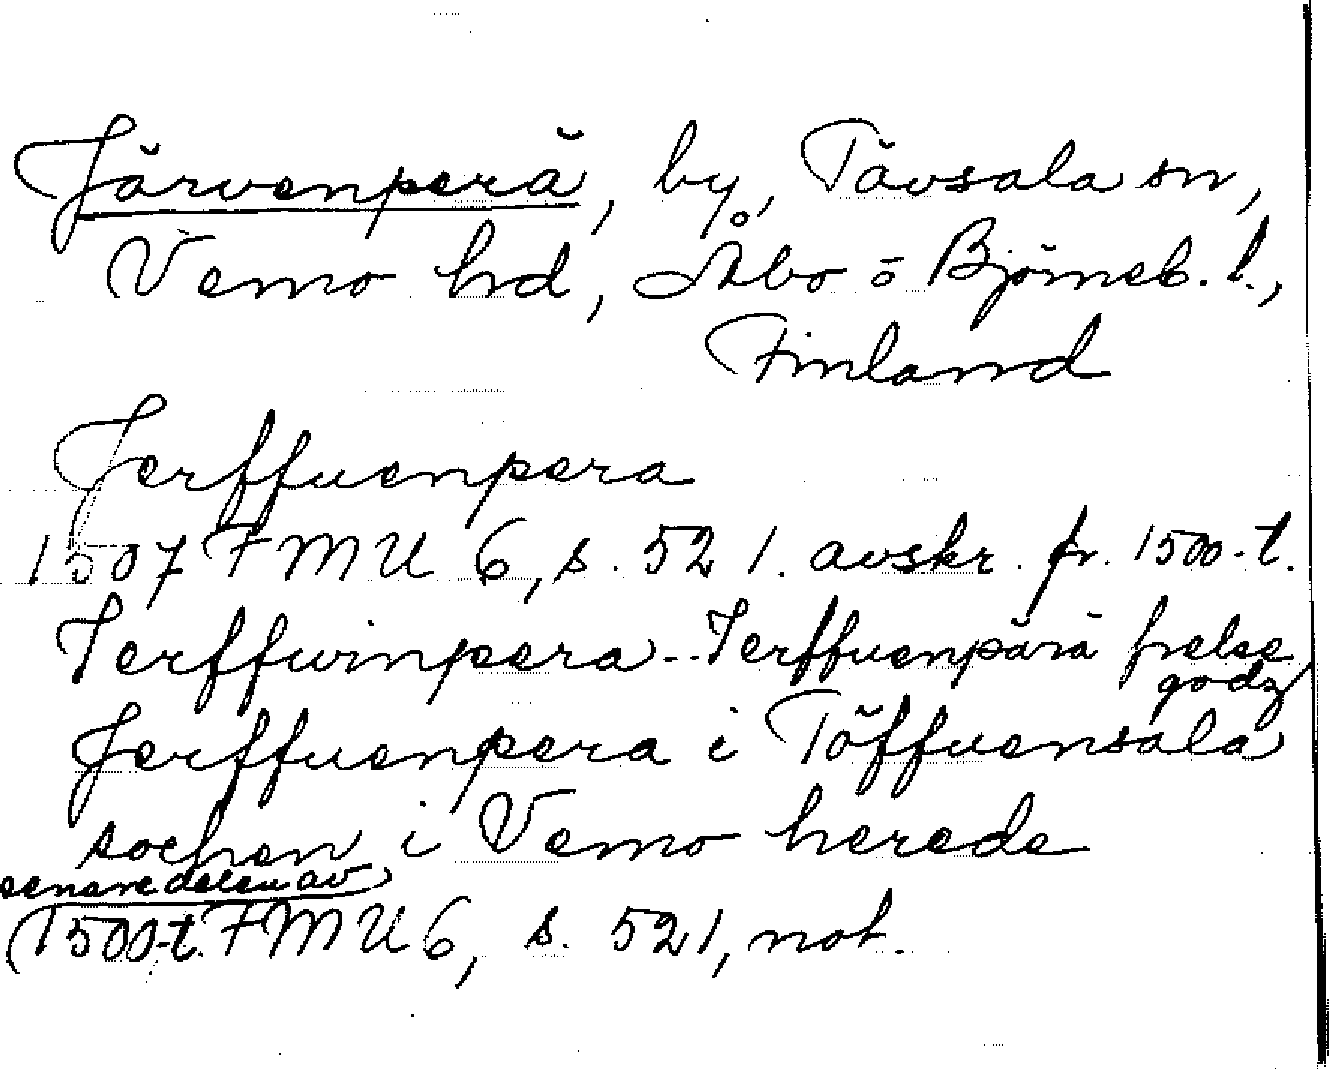 Järvenperä, by, Tävsala sn,
Vemo hd, Åbo o Björneb. l.,
Finland
Jerffuenpera
1507 FMU 6, s. 521. avskr. fr. 1500-t.
Jerffwinpera - Jerffuenpärä frelse
godz
Jerffuenpera i Töffuensala
sochen i Vemo herede
senare delen av
(1500-t. FMU 6, s. 521, not.